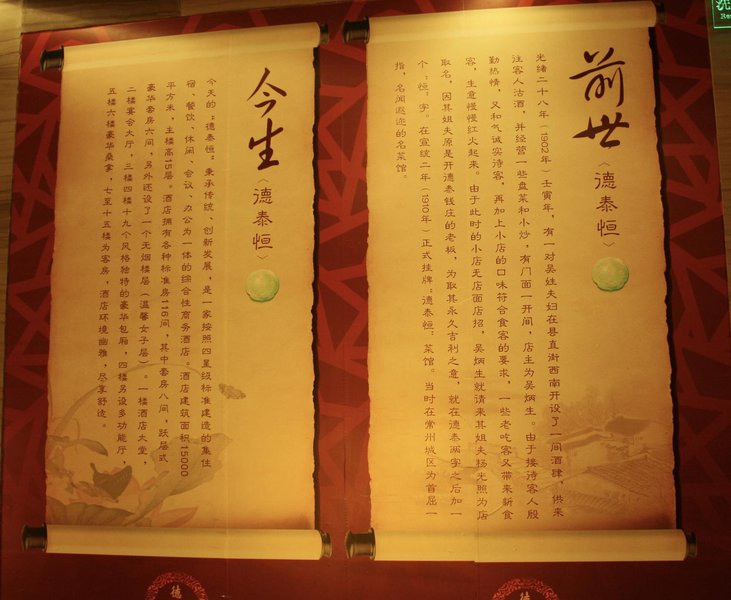 前世
〈德泰恒〉
光绪二十八年（1902年）壬寅年，有一对吴姓夫妇在县直街西南开设了一间酒肆，供来
往客人沽酒，并经营一些盘菜和小炒，有门面一开间，店主为吴炳生。由于接待客人殷
勤热情，又和气诚实待客，再加上小店的口味符合食客的要求，一些老吃客又带来新食
客，生意慢慢红火起来。由于此时的小店无店面店招，吴炳生就请来其姐夫杨光照为店
取名，因其姐夫原是开德泰钱庄的老板，为取其永久吉利之意，就在德泰两字之后加一
个“恒”字。在宣统二年（1910年）正式挂牌“德泰恒”菜馆。当时在常州城区为首屈一
指，名闻遐迩的名菜馆。
今生
〈德泰恒〉
今天的“德泰恒”秉承传统、创新发展，是一家按照四星级标准建造的集住
宿、餐饮、休闲、会议、办公为一体的综合性商务酒店。酒店建筑面积15000
平方米，主楼高15层。酒店拥有各种标准房116间，其中套房八间，跃层式
豪华套房六间，另外还设了一个无烟楼层（温馨女子层）。一楼酒店大堂，
二楼宴会大厅，三楼四楼十九个风格独特的豪华包厢，四楼另设多功能厅，
五楼六楼豪华桑拿，七至十五楼为客房，酒店环境幽雅，尽享舒适。
德
德